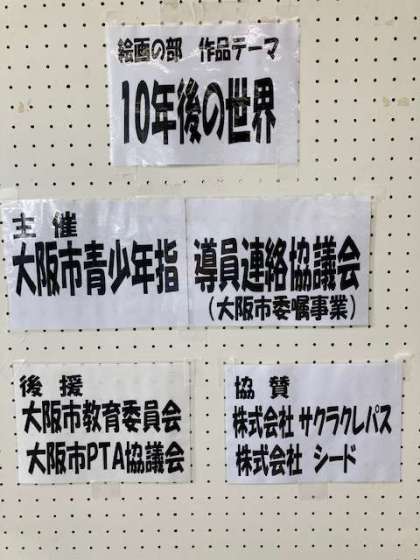 絵画の部　作品テーマ
10年後の世界
主 催
大阪市青少年指導員連絡協議会
(大阪市委嘱事業)
後 援
大阪市教育委員会
大阪市PTA協議会
協 賛
株式会社 サクラクレパス
株式会社 シード